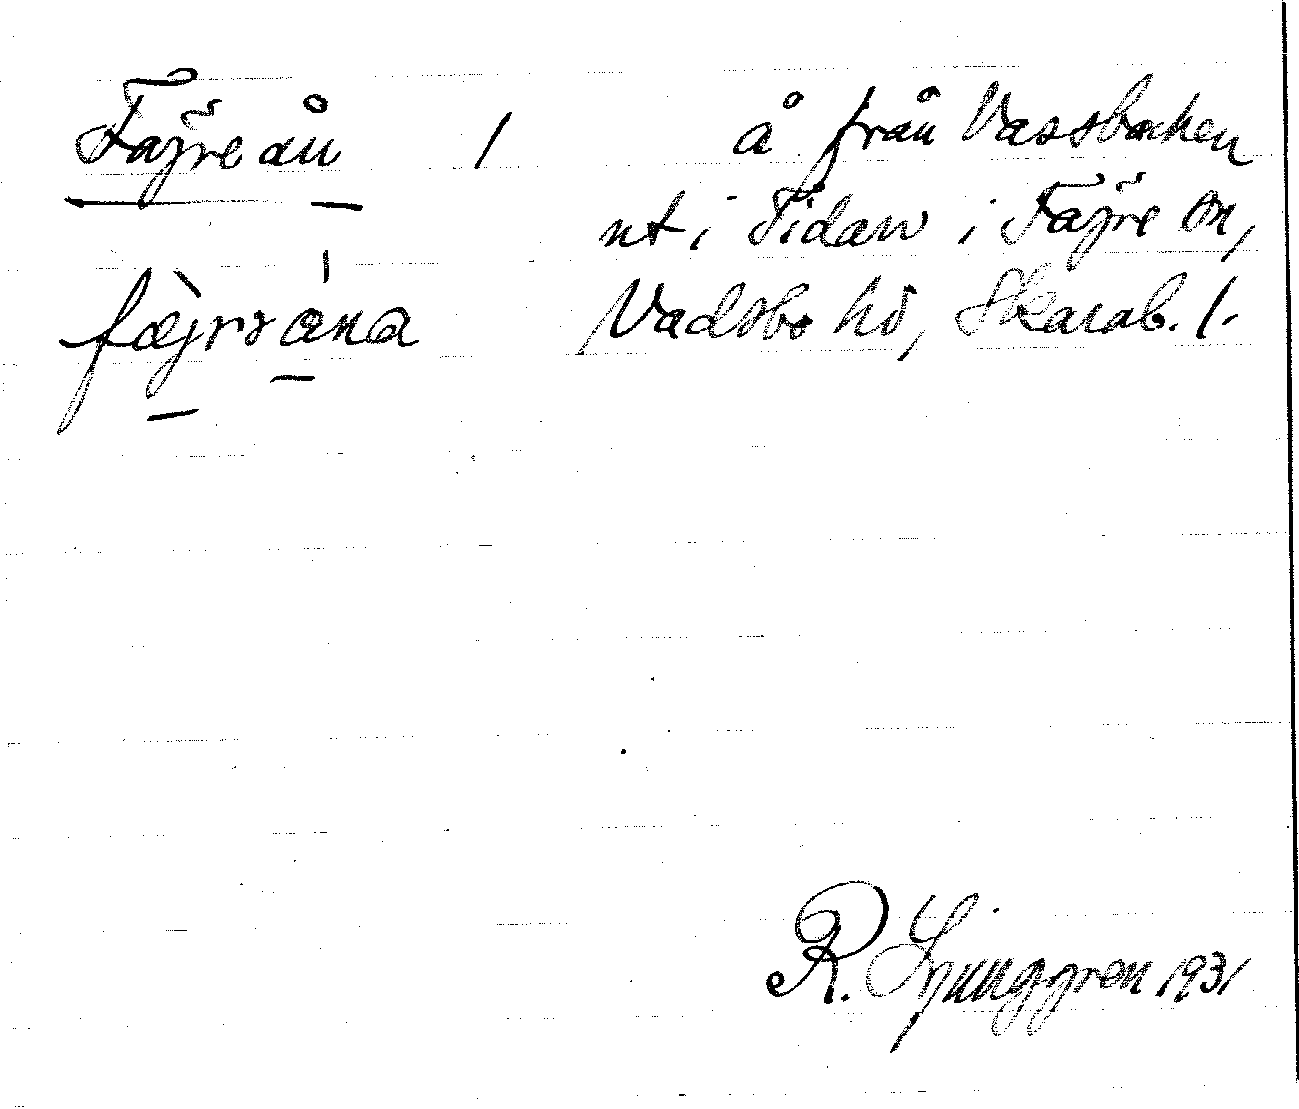 Fägreån / å från Vassbacken
ut i Tidan i Fägre sn,
fæjrsåna Vadsbo hd, Skarab. l.
R. Ljunggren 1931